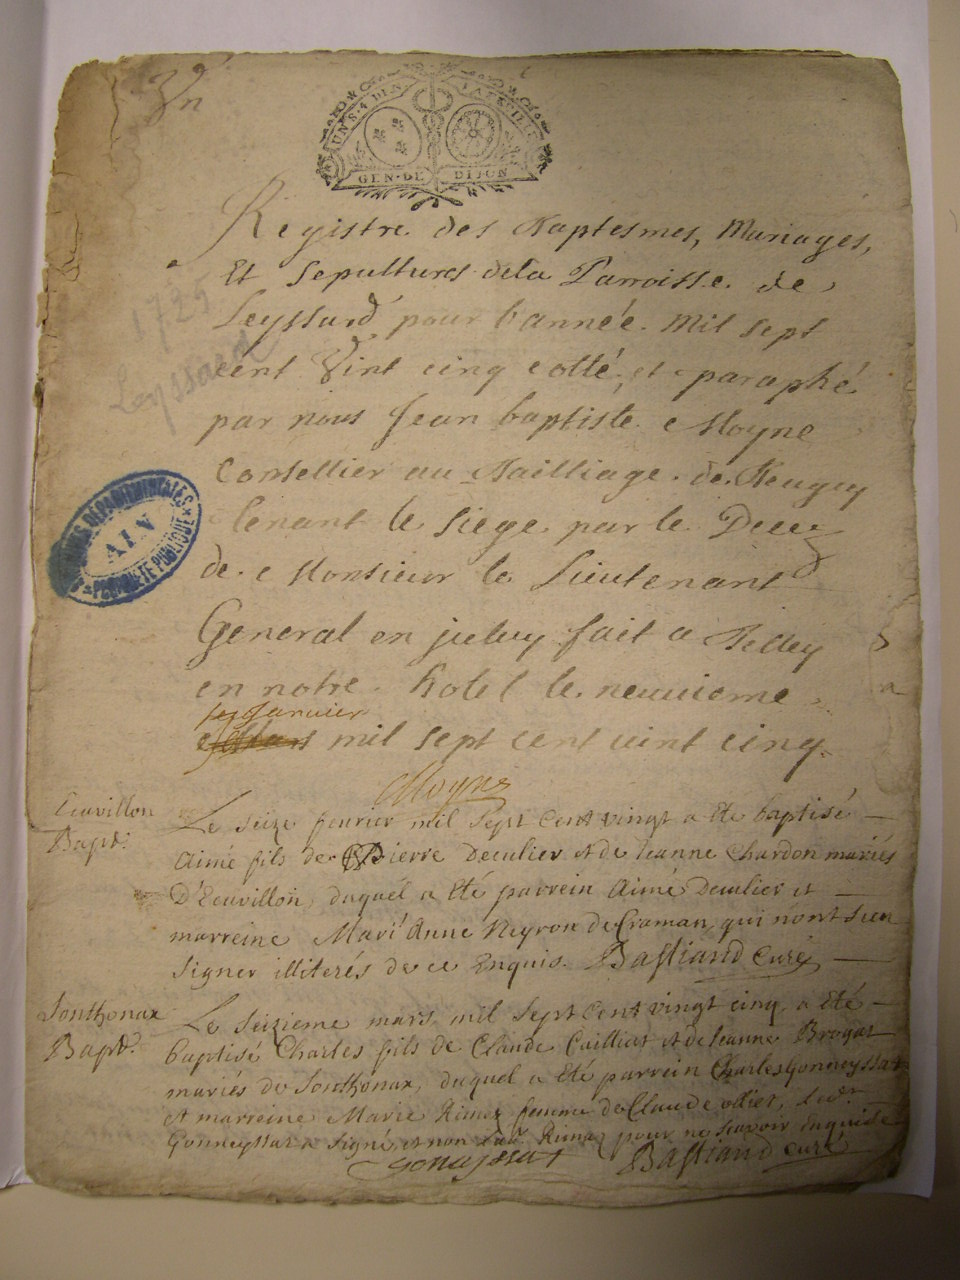 UN S 4 DEN LA FEUILLE
GEN · DE DIJON
Registre des Baptesmes, Mariages,
Et Sepultures dela Parroisse de
Leyssard pour l'année Mil sept
cent Vint cinq cotté et paraphé
par nous Jean baptiste Moyne
Conseillier au Bailliage de Beugey
tenant le siege par le Decez
de Monsieur le Lieutenant
General en fait a Belley
en notre hotel le neuvieme
Janvier
mil sept cent vint cinq
Moyne
1725
Leyssard
ARCHIVES DÉPARTEMENTALES
AIN
PROPRIÉTÉ PUBLIQUE
Ecuvillon
Bapt.
Le seize fevrier mil sept cent vingt a eté baptisé
Aimé fils de Pierre Deculier et de Jeanne Chardon mariés
D'Ecuvillon, duquel a eté parrein Aimé Deculier et
marreine Mari Anne Neyron de Craman, qui n'ont sceu
signer illiterés de ce Enquis. Bastiand Curé
Sonthonax
Bapt.
Le seizieme mars mil sept cent vingt cinq a eté
baptisé Charles fils de Claude Cailliat et de Jeanne Brogat
mariés de Sonthonax, duquel a eté parrein Charles Gonneyssat
et marreine Marie femme de Claude
Gonneyssat a signé, et non pour ne scavoir
Bastiand curé